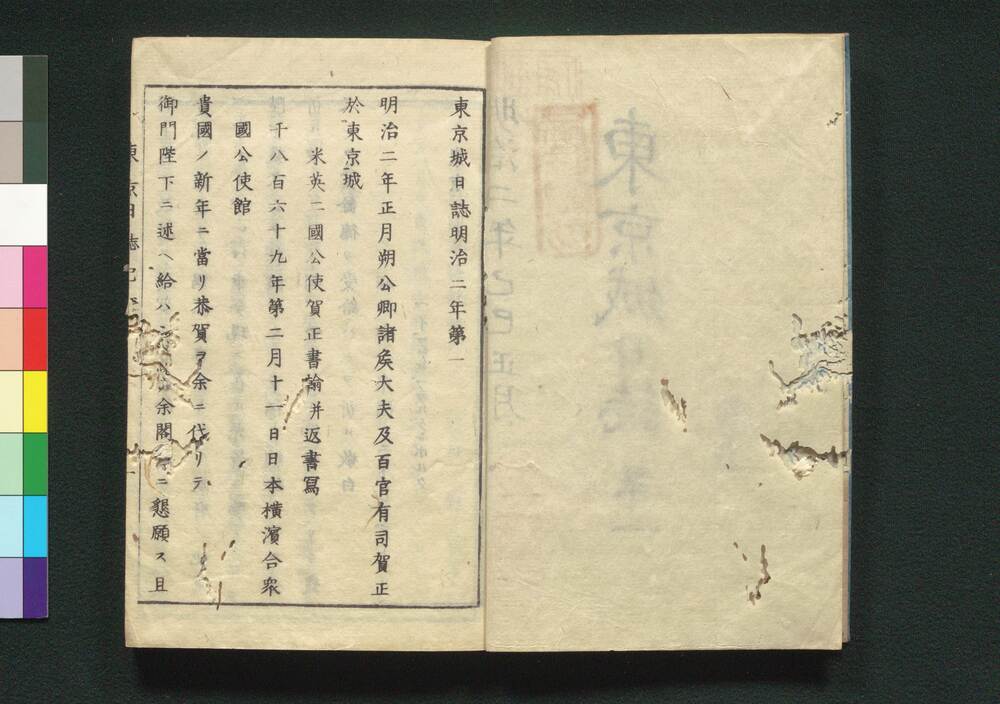 東京城日誌明治二年第一
明治二年正月朔公卿諸矦大夫及百官有司賀正
於東京城
米英二國公使賀正書翰并返書寫
千八百六十九年第二月十一日日本橫濱合衆
國公使館
貴國ノ新年ニ當リ恭賀ヲ余ニ代リテ
御門陛下ニ述ヘ給ハ
余閣
ニ懇願ス且